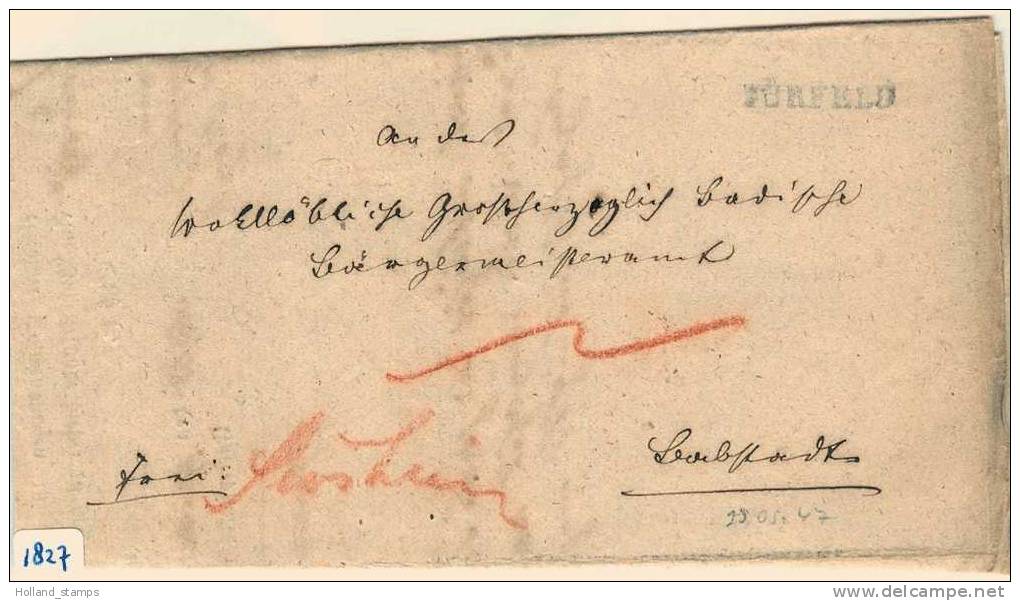 FÜRFELD
An das
Wohllöbliche Großherzoglich Badische
Bürgermeisteramt
frei:
Babstadt
29.05.47
1827
Holland_stamps
www.delcampe.net